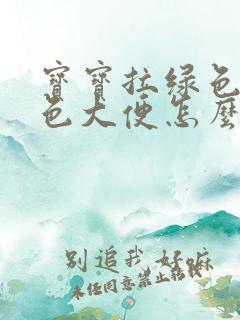 寶寶拉綠色
色大便怎麼
別追我 好嘛
未经同意禁止转载